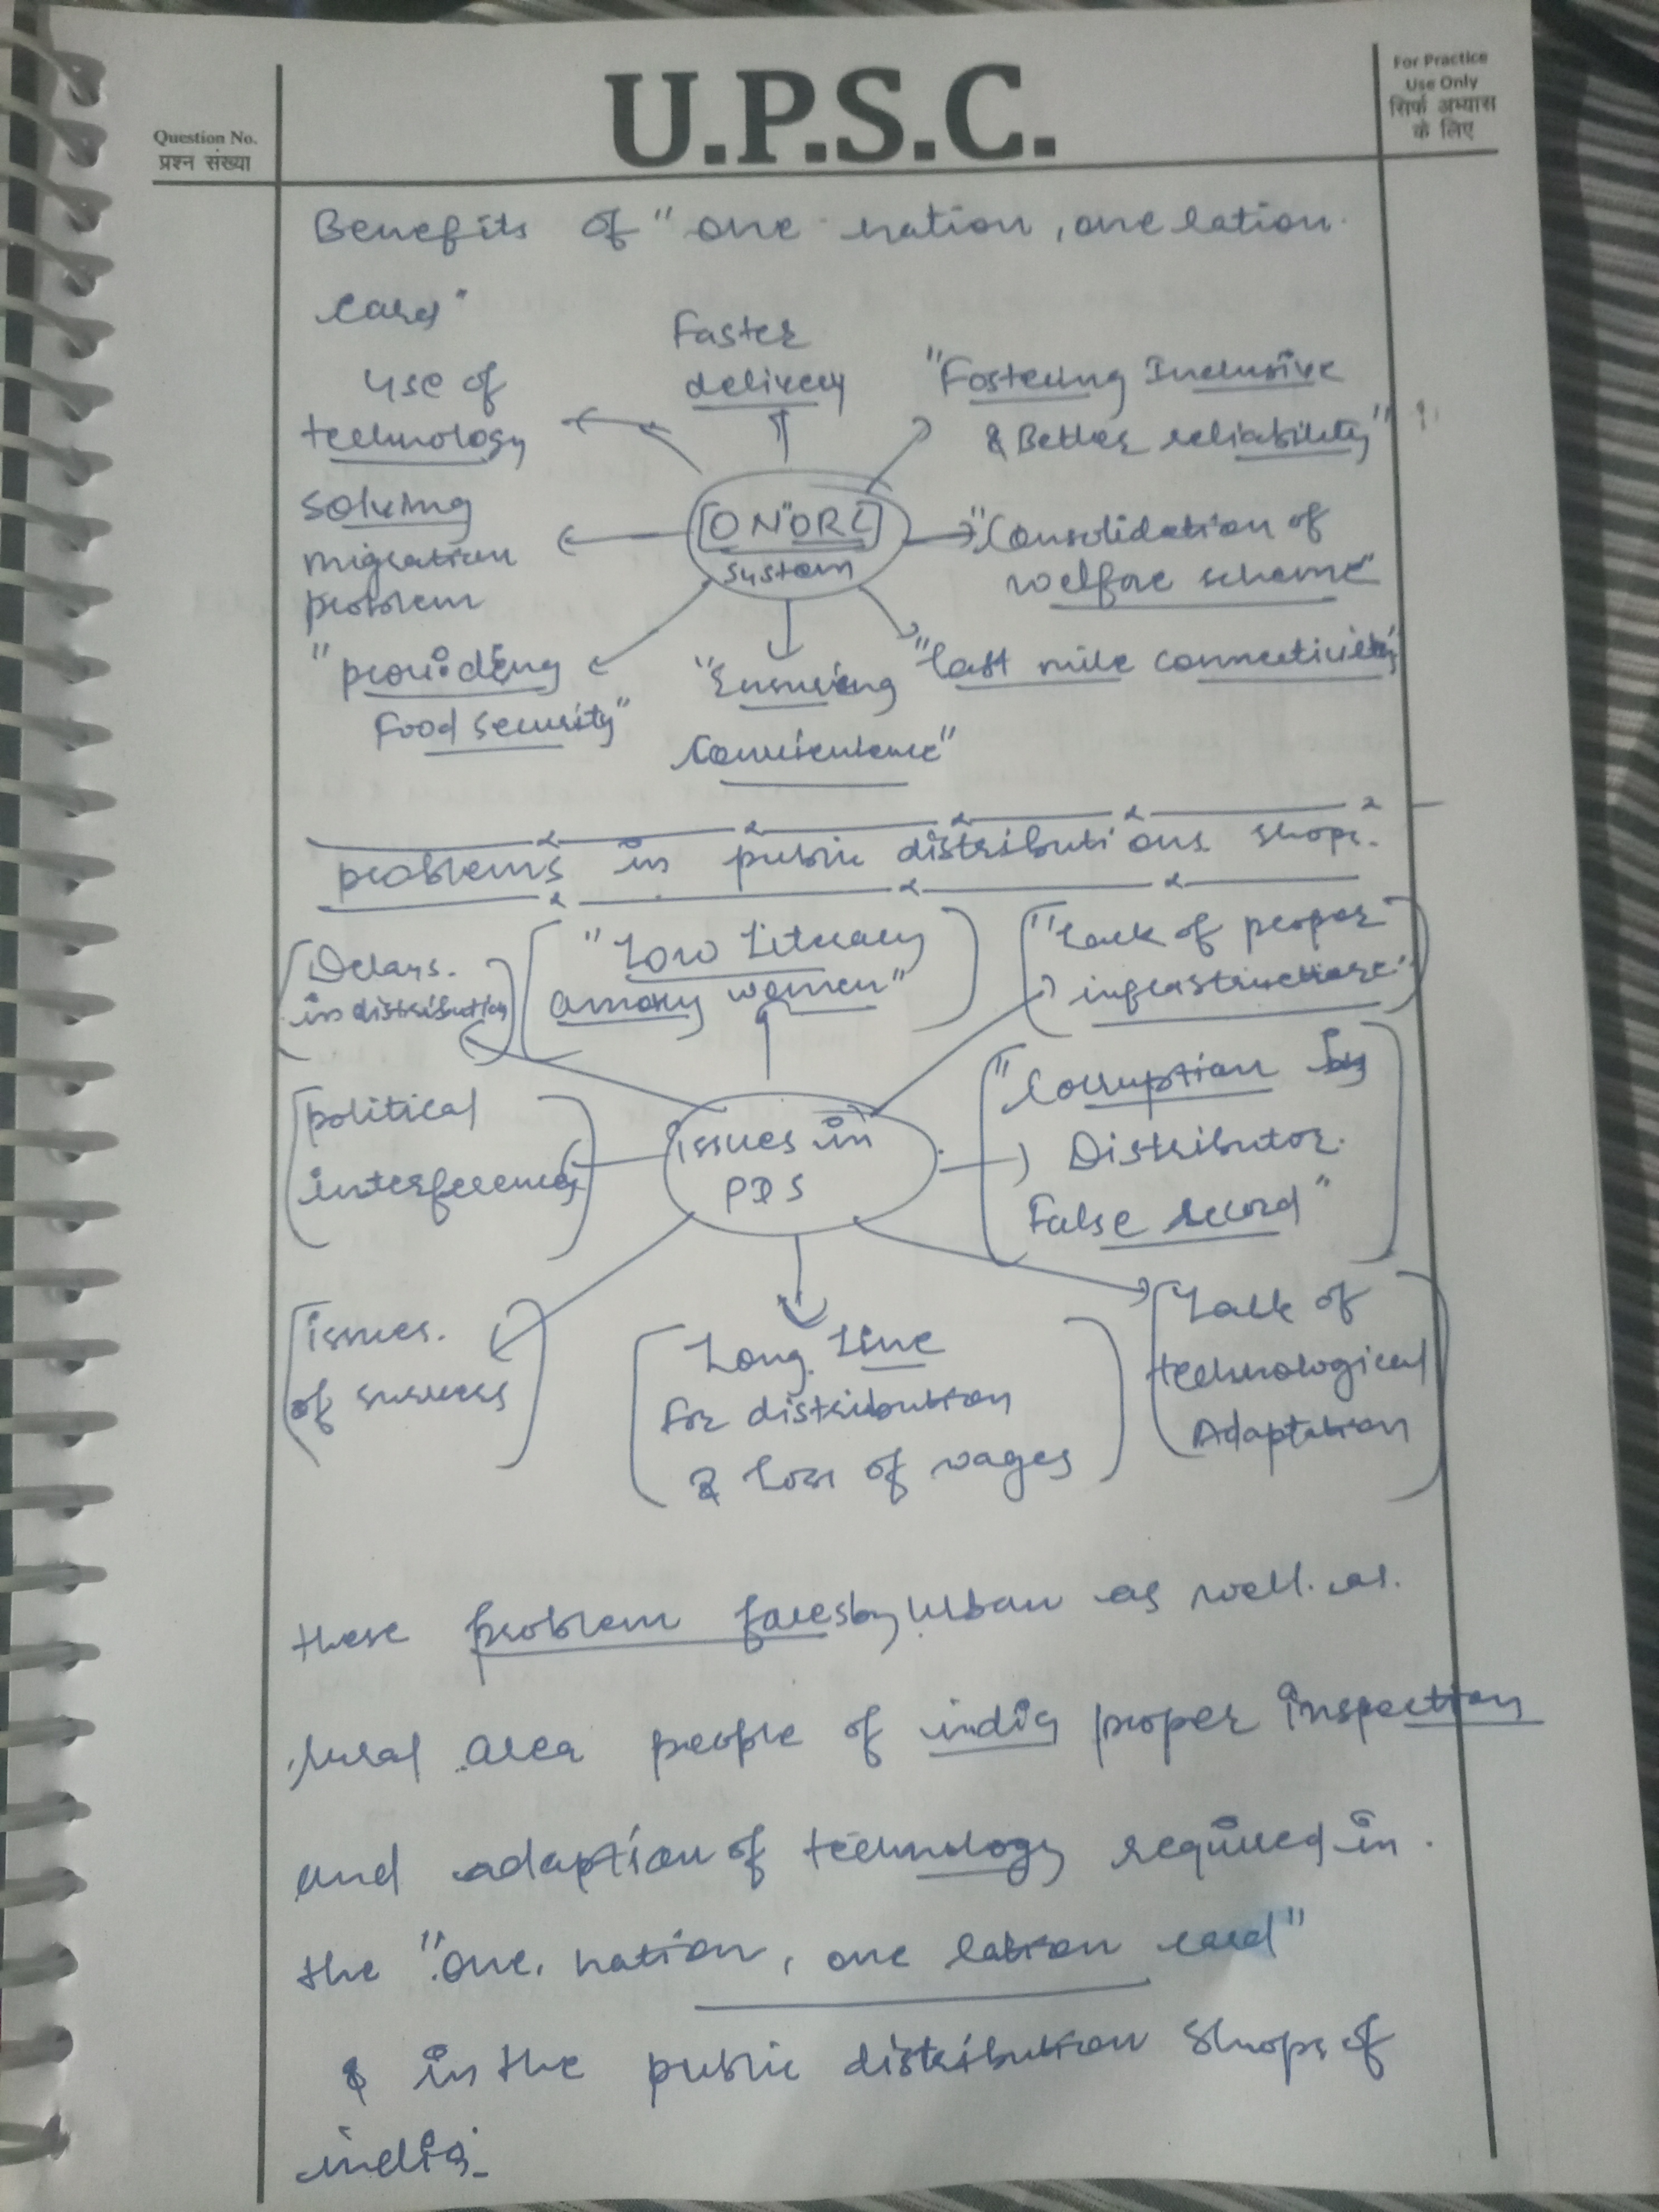 U.P.S.C.
For Practice
Use Only
सिर्फ अभ्यास
के लिए
Question No.
प्रश्न संख्या
Benefits of "one nation, one ration
card"
Faster
delivery
use of
technology
"Fostering Inclusive
& Better reliability"
solving
migration
problem
ONORC
system
"Consolidation of
welfare scheme"
"providing
Food security"
"Ensuring
Convenience"
"last mile connectivity"
problems in public distributions shops.
Delays.
in distribution
"Low Literacy
among women"
"lack of proper
infrastructure"
political
interference
issues in
PDS
"Corruption by
Distributor.
False record"
issues.
of
Long Line
for distribution
& loss of wages
Lack of
technological
Adaptation
these problem faces by urban as well as.
rural area people of india proper inspection
and adaption of technology required in.
the "one nation, one ration card"
& in the public distribution shops of
india.